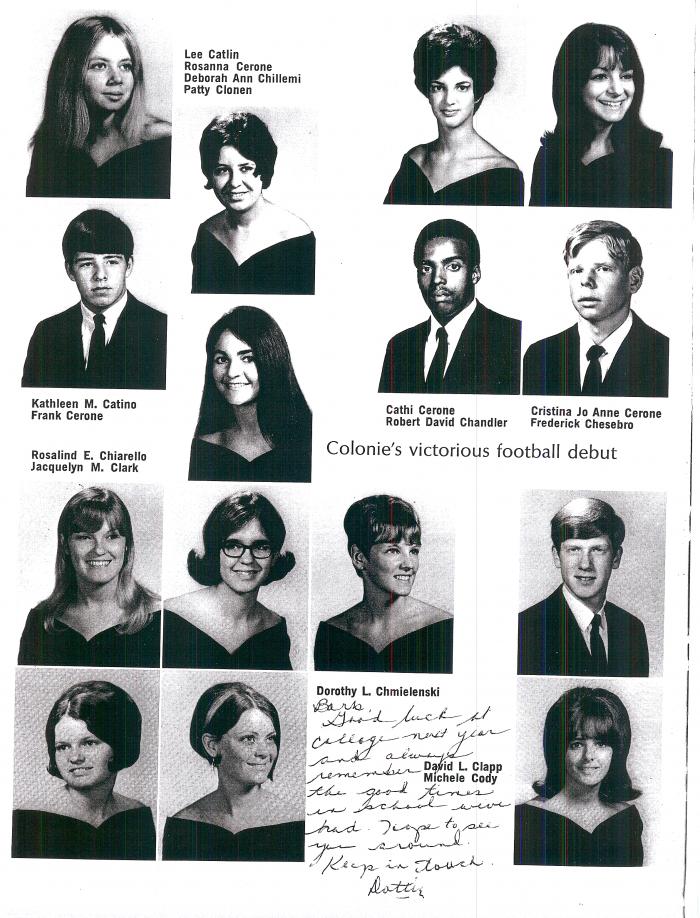 Lee Catlin
Rosanna Cerone
Deborah Ann Chillemi
Patty Clonen
Kathleen M. Catino
Frank Cerone
Cathi Cerone
Robert David Chandler
Cristina Jo Anne Cerone
Frederick Chesebro
Colonie's victorious football debut
Rosalind E. Chiarello
Jacquelyn M. Clark
Dorothy L. Chmielenski
Barb,
Good luck at
college next year
and always
remember
David L. Clapp
Michele Cody
the good times
in school weve
had. Hope to see
you around.
Keep in touch.
Dottie